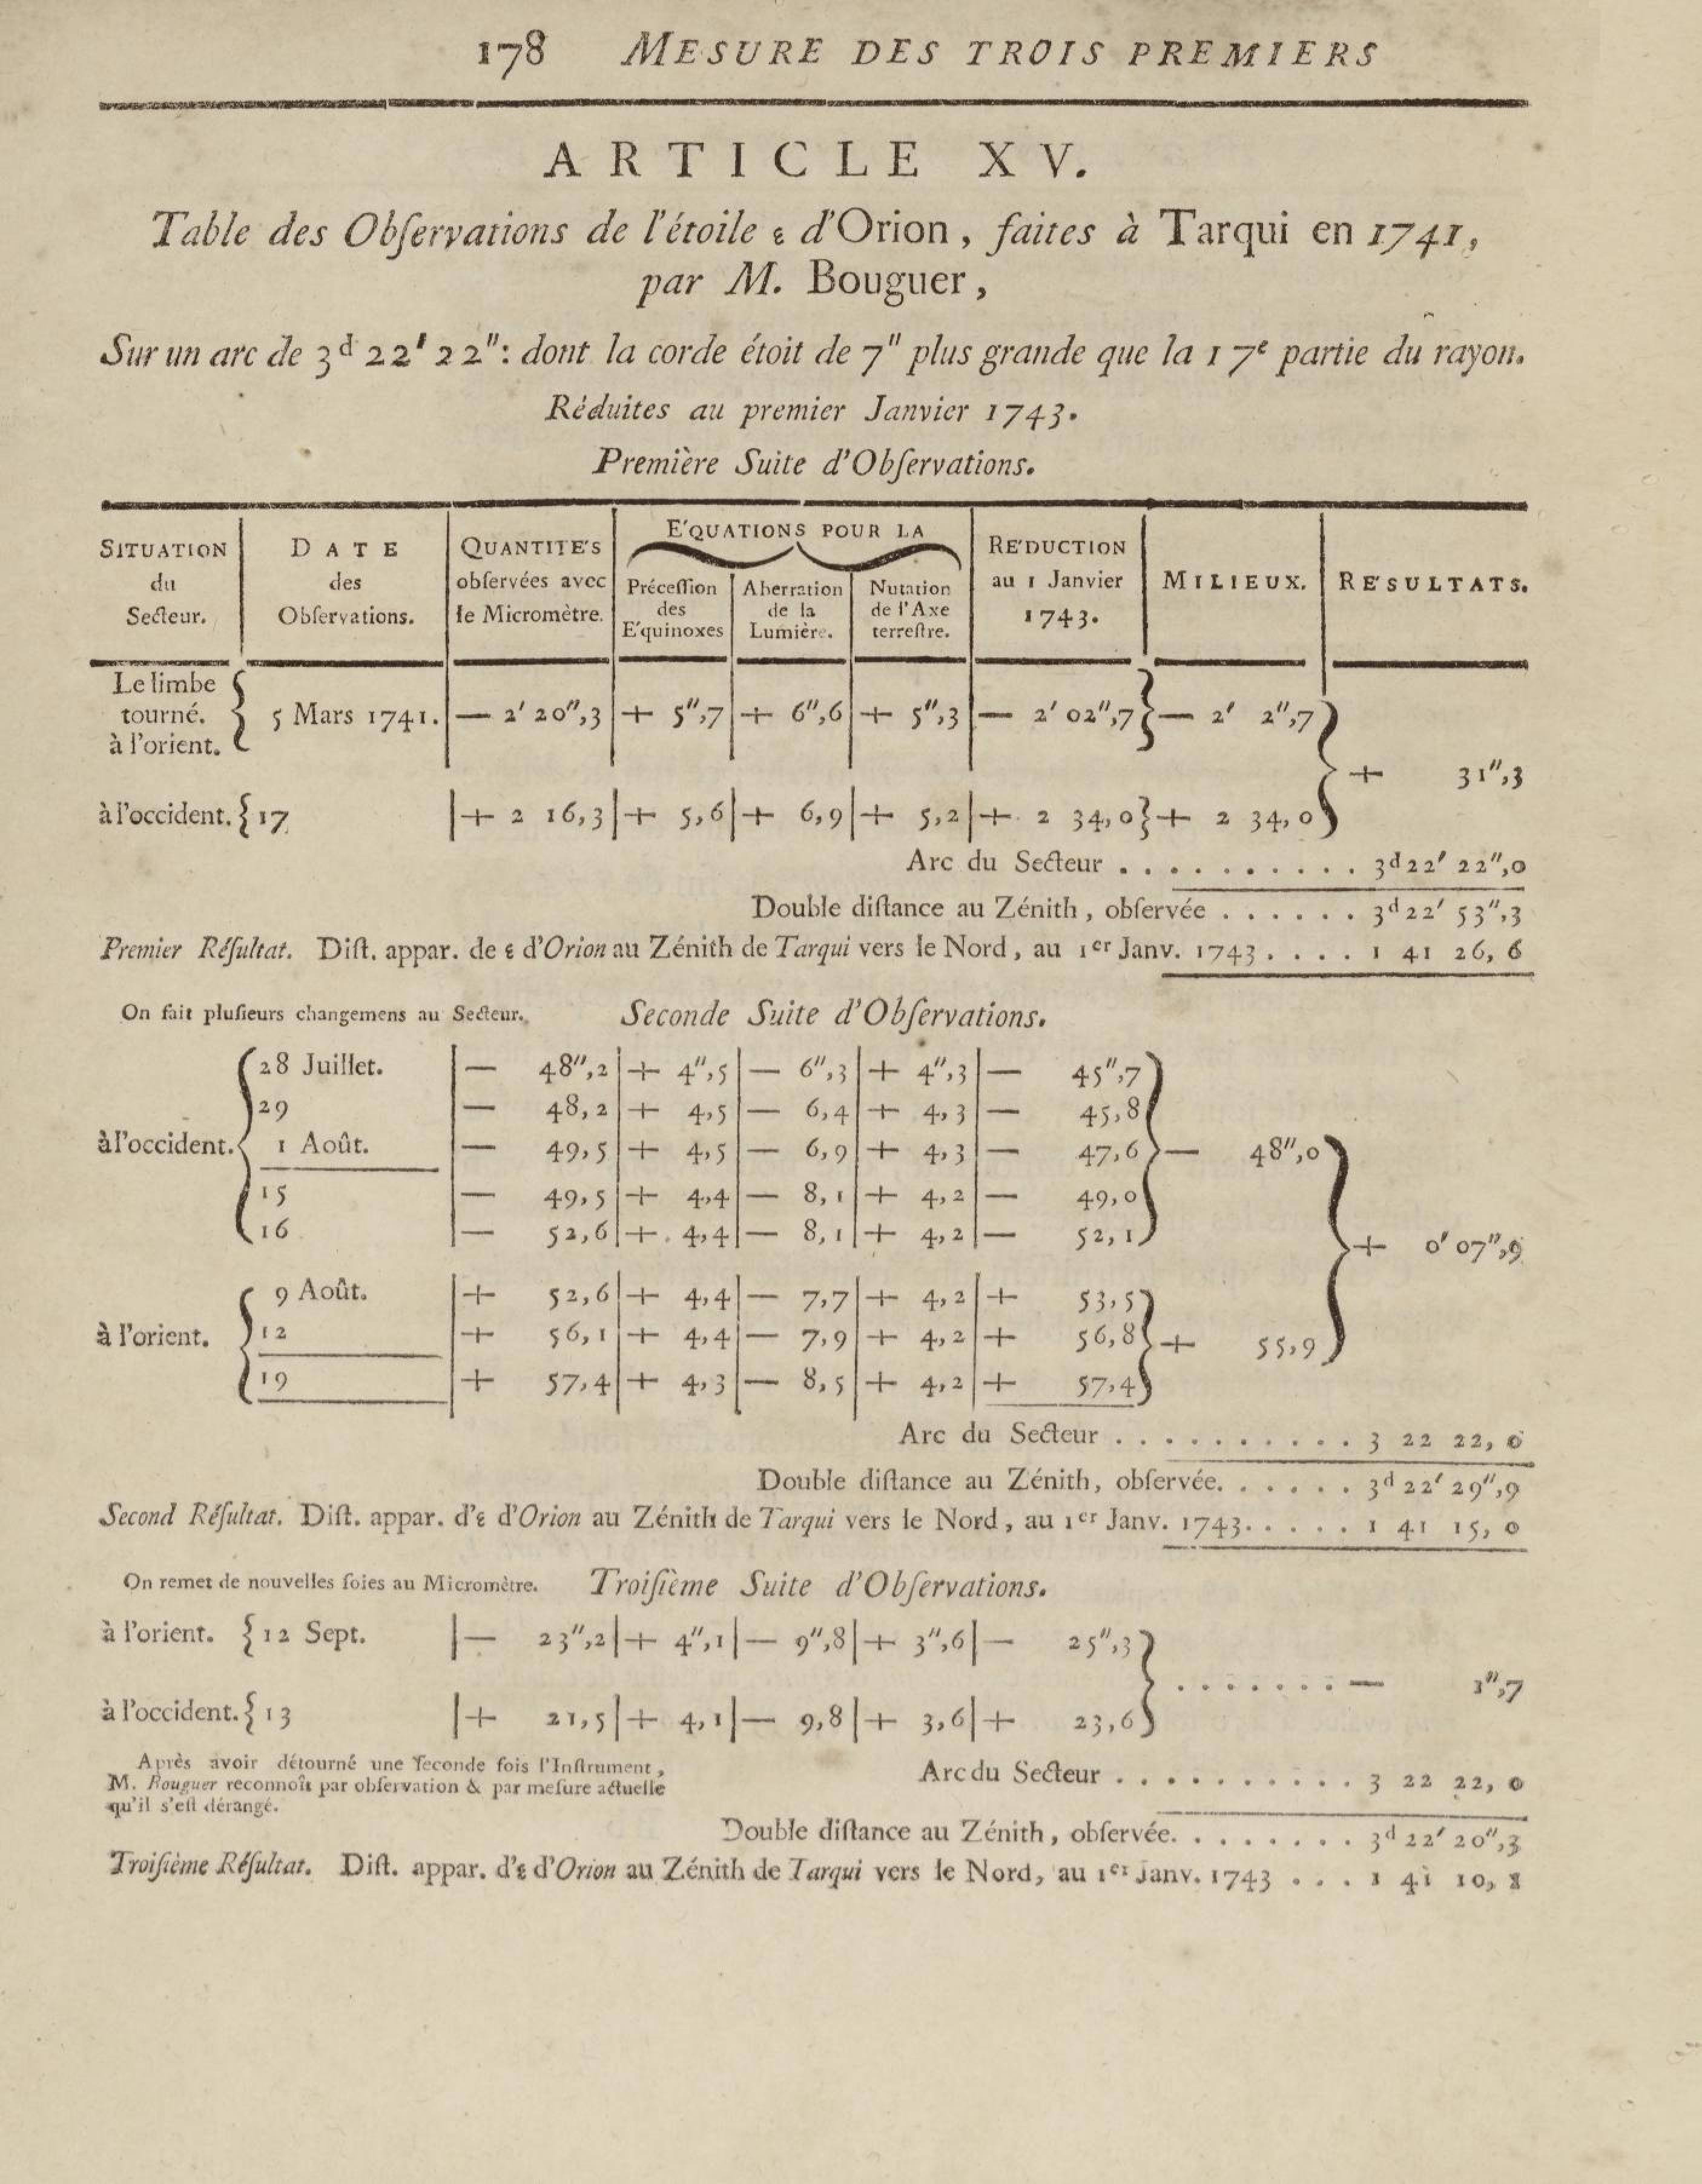 178 MESURE DES TROIS PREMIERS
ARTICLE XV.
Table des Obſervations de l'étoile ε d'Orion, faites à Tarqui en 1741,
par M. Bouguer,
Sur un arc de 3ᵈ 22′ 22″: dont la corde étoit de 7″ plus grande que la 17ᵉ partie du rayon.
Réduites au premier Janvier 1743.
Première Suite d'Obſervations.
SITUATION du Secteur. | DATE des Obſervations. | QUANTITE'S obſervées avec le Micromètre. | E'QUATIONS POUR LA Préceſſion des E'quinoxes | Aberration de la Lumière. | Nutation de l'Axe terreſtre. | RE'DUCTION au 1 Janvier 1743. | MILIEUX. | RE'SULTATS.
Le limbe tourné. à l'orient. { 5 Mars 1741. | — 2′ 20″,3 | + 5″,7 | + 6″,6 | + 5″,3 | — 2′ 02″,7 } — 2′ 2″,7
+ 31″,3
à l'occident. { 17 | + 2 16,3 | + 5,6 | + 6,9 | + 5,2 | + 2 34,0 } + 2 34,0
Arc du Secteur . . . . . . . . . . 3ᵈ 22′ 22″,0
Double diſtance au Zénith, obſervée . . . . . . 3ᵈ 22′ 53″,3
Premier Réſultat. Diſt. appar. de ε d'Orion au Zénith de Tarqui vers le Nord, au 1er Janv. 1743 . . . . 1 41 26,6
On fait pluſieurs changemens au Secteur. Seconde Suite d'Obſervations.
28 Juillet. | — 48″,2 | + 4″,5 | — 6″,3 | + 4″,3 | — 45″,7
29 | — 48,2 | + 4,5 | — 6,4 | + 4,3 | — 45,8
à l'occident. 1 Août. | — 49,5 | + 4,5 | — 6,9 | + 4,3 | — 47,6 } — 48″,0
15 | — 49,5 | + 4,4 | — 8,1 | + 4,2 | — 49,0
16 | — 52,6 | + 4,4 | — 8,1 | + 4,2 | — 52,1
+ 0′ 07″,9
9 Août. | + 52,6 | + 4,4 | — 7,7 | + 4,2 | + 53,5
à l'orient. 12 | + 56,1 | + 4,4 | — 7,9 | + 4,2 | + 56,8 } + 55,9
19 | + 57,4 | + 4,3 | — 8,5 | + 4,2 | + 57,4
Arc du Secteur . . . . . . . . . . 3 22 22,0
Double diſtance au Zénith, obſervée. . . . . . 3ᵈ 22′ 29″,9
Second Réſultat. Diſt. appar. d'ε d'Orion au Zénith de Tarqui vers le Nord, au 1er Janv. 1743. . . . . 1 41 15,0
On remet de nouvelles ſoies au Micromètre. Troiſième Suite d'Obſervations.
à l'orient. { 12 Sept. | — 23″,2 | + 4″,1 | — 9″,8 | + 3″,6 | — 25″,3
. . . . . . . — 1″,7
à l'occident. { 13 | + 21,5 | + 4,1 | — 9,8 | + 3,6 | + 23,6
Après avoir détourné une ſeconde fois l'Inſtrument,
M. Bouguer reconnoît par obſervation & par meſure actuelle
qu'il s'eſt dérangé.
Arc du Secteur . . . . . . . . . . 3 22 22,0
Double diſtance au Zénith, obſervée. . . . . . . . 3ᵈ 22′ 20″,3
Troiſième Réſultat. Diſt. appar. d'ε d'Orion au Zénith de Tarqui vers le Nord, au 1er Janv. 1743 . . . 1 41 10,1